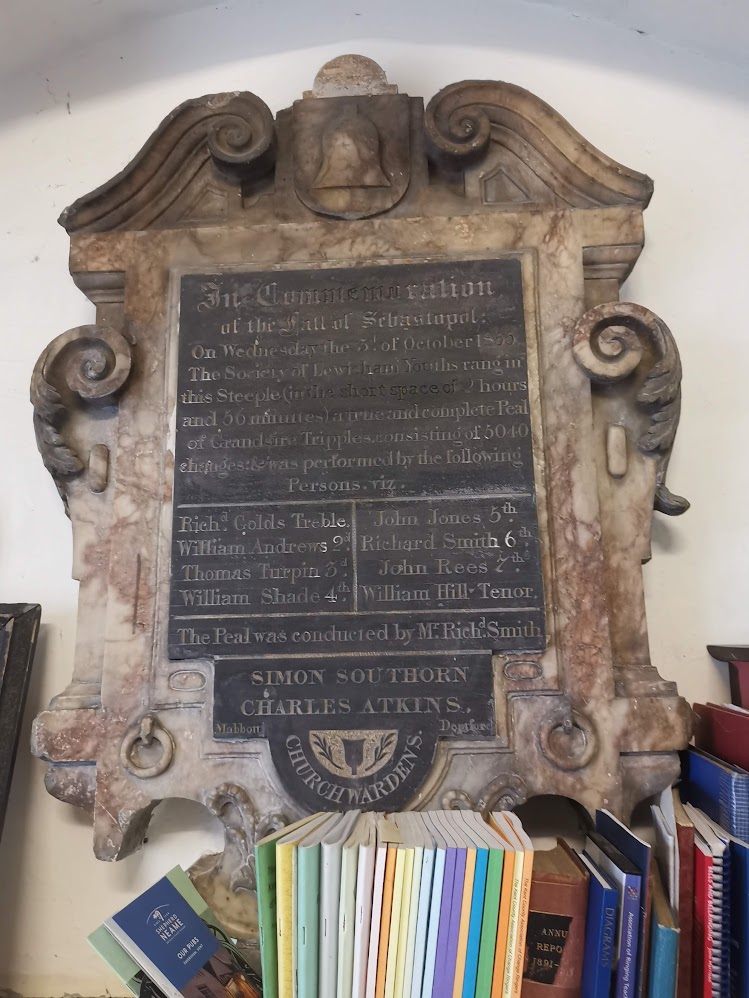 In Commemoration
of the Fall of Sebastopol:
On Wednesday the 3d. of October 1855
The Society of Lewisham Youths rang in
this Steeple (in the short space of 2 hours
and 56 minutes) a true and complete Peal
of Grandsire Tripples, consisting of 5040
changes: & was performed by the following
Persons. viz.
Richd. Golds Treble.
William Andrews 2d.
Thomas Turpin 3d.
William Shade 4th.
John Jones 5th.
Richard Smith 6th.
John Rees 7th.
William Hill Tenor.
The Peal was conducted by Mr. Richd. Smith
SIMON SOUTHORN
CHARLES ATKINS.
Mabbon Deptford
CHURCHWARDENS.
SHEPHERD
NEAME
OUR PUBS
ANNU
REPO
1891-
DIAGRAMS
Association of Ringing